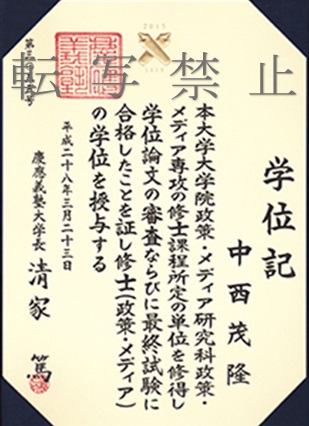 学位記
中西茂隆
本大学大学院政策・メディア研究科政策・
メディア専攻の修士課程所定の単位を修得し
学位論文の審査ならびに最終試験に
合格したことを証し修士(政策・メディア)
の学位を授与する
平成二十八年三月二十三日
慶應義塾大学長 清家 篤
転写禁止
2015